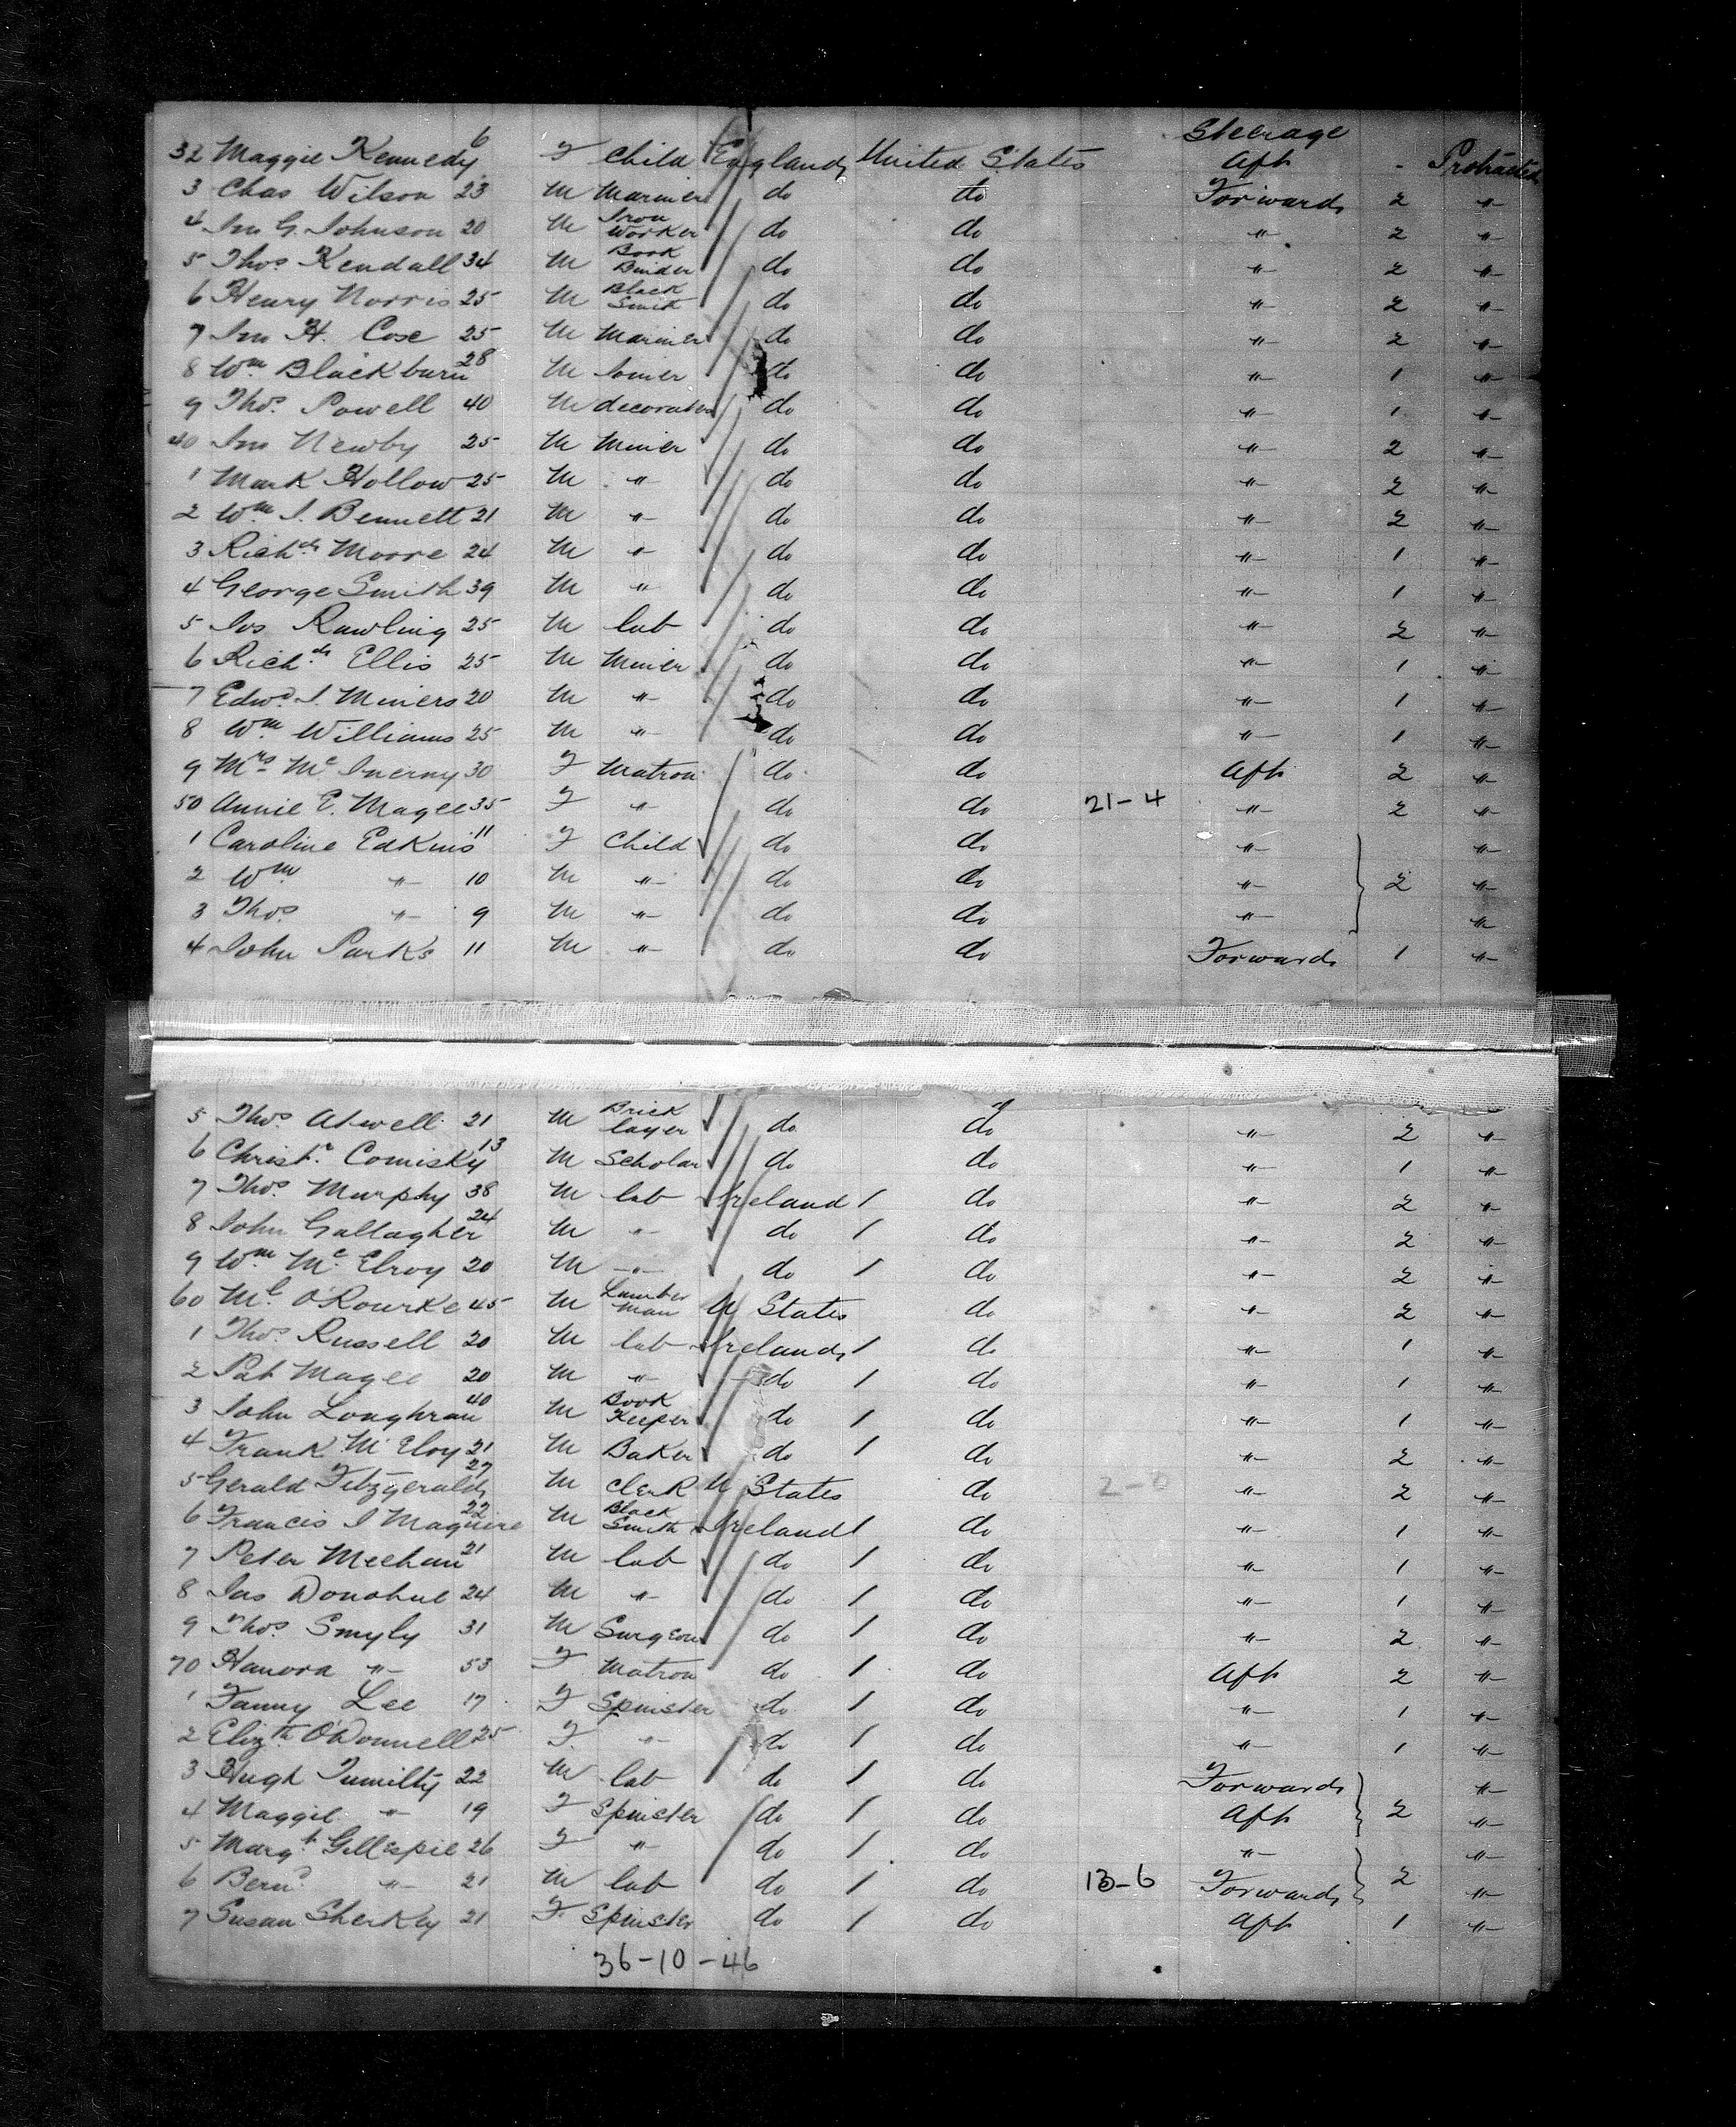 Steerage
32 Maggie Kennedy 6 F Child England United States Aft - Protracted
3 Chas Wilson 23 M Mariner do do Forwards 2 "
4 Jno G. Johnson 20 M Iron Worker do do " 2 "
5 Thos Kendall 34 M Book Binder do do " 2 "
6 Henry Norris 25 M Black Smith do do " 2 "
7 Jno H. Cose 25 M Mariner do do " 2 "
8 Wm Blackburn 28 M Joiner do do " 1 "
9 Thos. Powell 40 M decorator do do " 1 "
40 Jno Newby 25 M Miner do do " 2 "
1 Mark Hollow 25 M " do do " 2 "
2 Wm J. Bennett 21 M " do do " 2 "
3 Richd Moore 24 M " do do " 1 "
4 George Smith 39 M " do do " 1 "
5 Jos Rawling 25 M lab do do " 2 "
6 Richd Ellis 25 M Miner do do " 1 "
7 Edwd J. Miners 20 M " do do " 1 "
8 Wm Williams 25 M " do do " 1 "
9 Mrs Mc Inerny 30 F Matron do do Aft 2 "
50 Annie E. Magee 35 F " do do 21-4 " 2 "
1 Caroline Edkins 11 F Child do do " "
2 Wm " 10 M " do do " 2 "
3 Thos " 9 M " do do " "
4 John Parks 11 M " do do Forwards 1 "
5 Thos Atwell 21 M Brick layer do do " 2 "
6 Christr. Comisky 13 M Scholar do do " 1 "
7 Thos. Murphy 38 M lab Ireland 1 do " 2 "
8 John Gallagher 24 M " do 1 do " 2 "
9 Wm Mc Elroy 20 M " do 1 do " 2 "
60 Ml O'Rourke 45 M Lumber man U States do " 2 "
1 Thos. Russell 20 M lab Ireland 1 do " 1 "
2 Pat Magee 20 M " do 1 do " 1 "
3 John Loughran 40 M Book Keeper do 1 do " 1 "
4 Frank Mc Eloy 21 M Baker do 1 do " 2 "
5 Gerald Fitzgerald 27 M Clerk U States do 2-0 " 2 "
6 Francis J Maguire 22 M Black Smith Ireland 1 do " 1 "
7 Peter Meehan 21 M lab do 1 do " 1 "
8 Jas Donohue 24 M " do 1 do " 1 "
9 Thos. Smyly 31 M Surgeon do 1 do " 2 "
70 Hanora " 53 F Matron do 1 do Aft 2 "
1 Fanny Lee 17 F Spinster do 1 do " 1 "
2 Elizth O'Donnell 25 F. " do 1 do " 1 "
3 Hugh Tumilty 22 M lab do 1 do Forwards "
4 Maggie " 19 F Spinster do 1 do Aft 2 "
5 Margt Gillespie 26 F " do 1 do " "
6 Bernd " 21 M lab do 1 do 13-6 Forwards 2 "
7 Susan Sherkey 21 F. Spinster do 1 do Aft 1 "
36-10-46